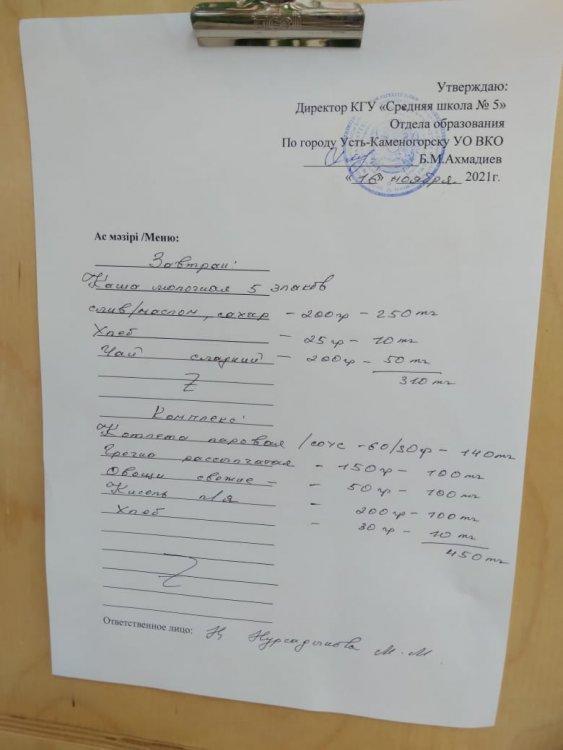 Утверждаю:
Директор КГУ «Средняя школа № 5»
Отдела образования
По городу Усть-Каменогорску УО ВКО
Б.М.Ахмадиев
«16» ноября 2021г.
Ас мәзірі /Меню:
Завтрак:
Каша молочная 5 злаков
слив/маслом, сахар - 200гр - 250тг
Хлеб - 25гр - 10тг
Чай сладкий - 200гр - 50тг
310тг
Комплекс:
Котлета паровая /соус - 60/30гр - 140тг
Гречка рассыпчатая - 150гр - 100тг
Овощи свежие - - 50гр - 100тг
Кисель п/я - 200гр - 100тг
Хлеб - 30гр - 10тг
450тг
Ответственное лицо: М.М.